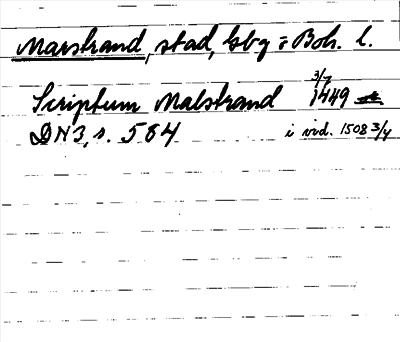 Marstrand, stad, Gbg o Boh. l.
Scriptum Malstrand 3/7 1449
DN 3, s. 584 i vid. 1508 3/4